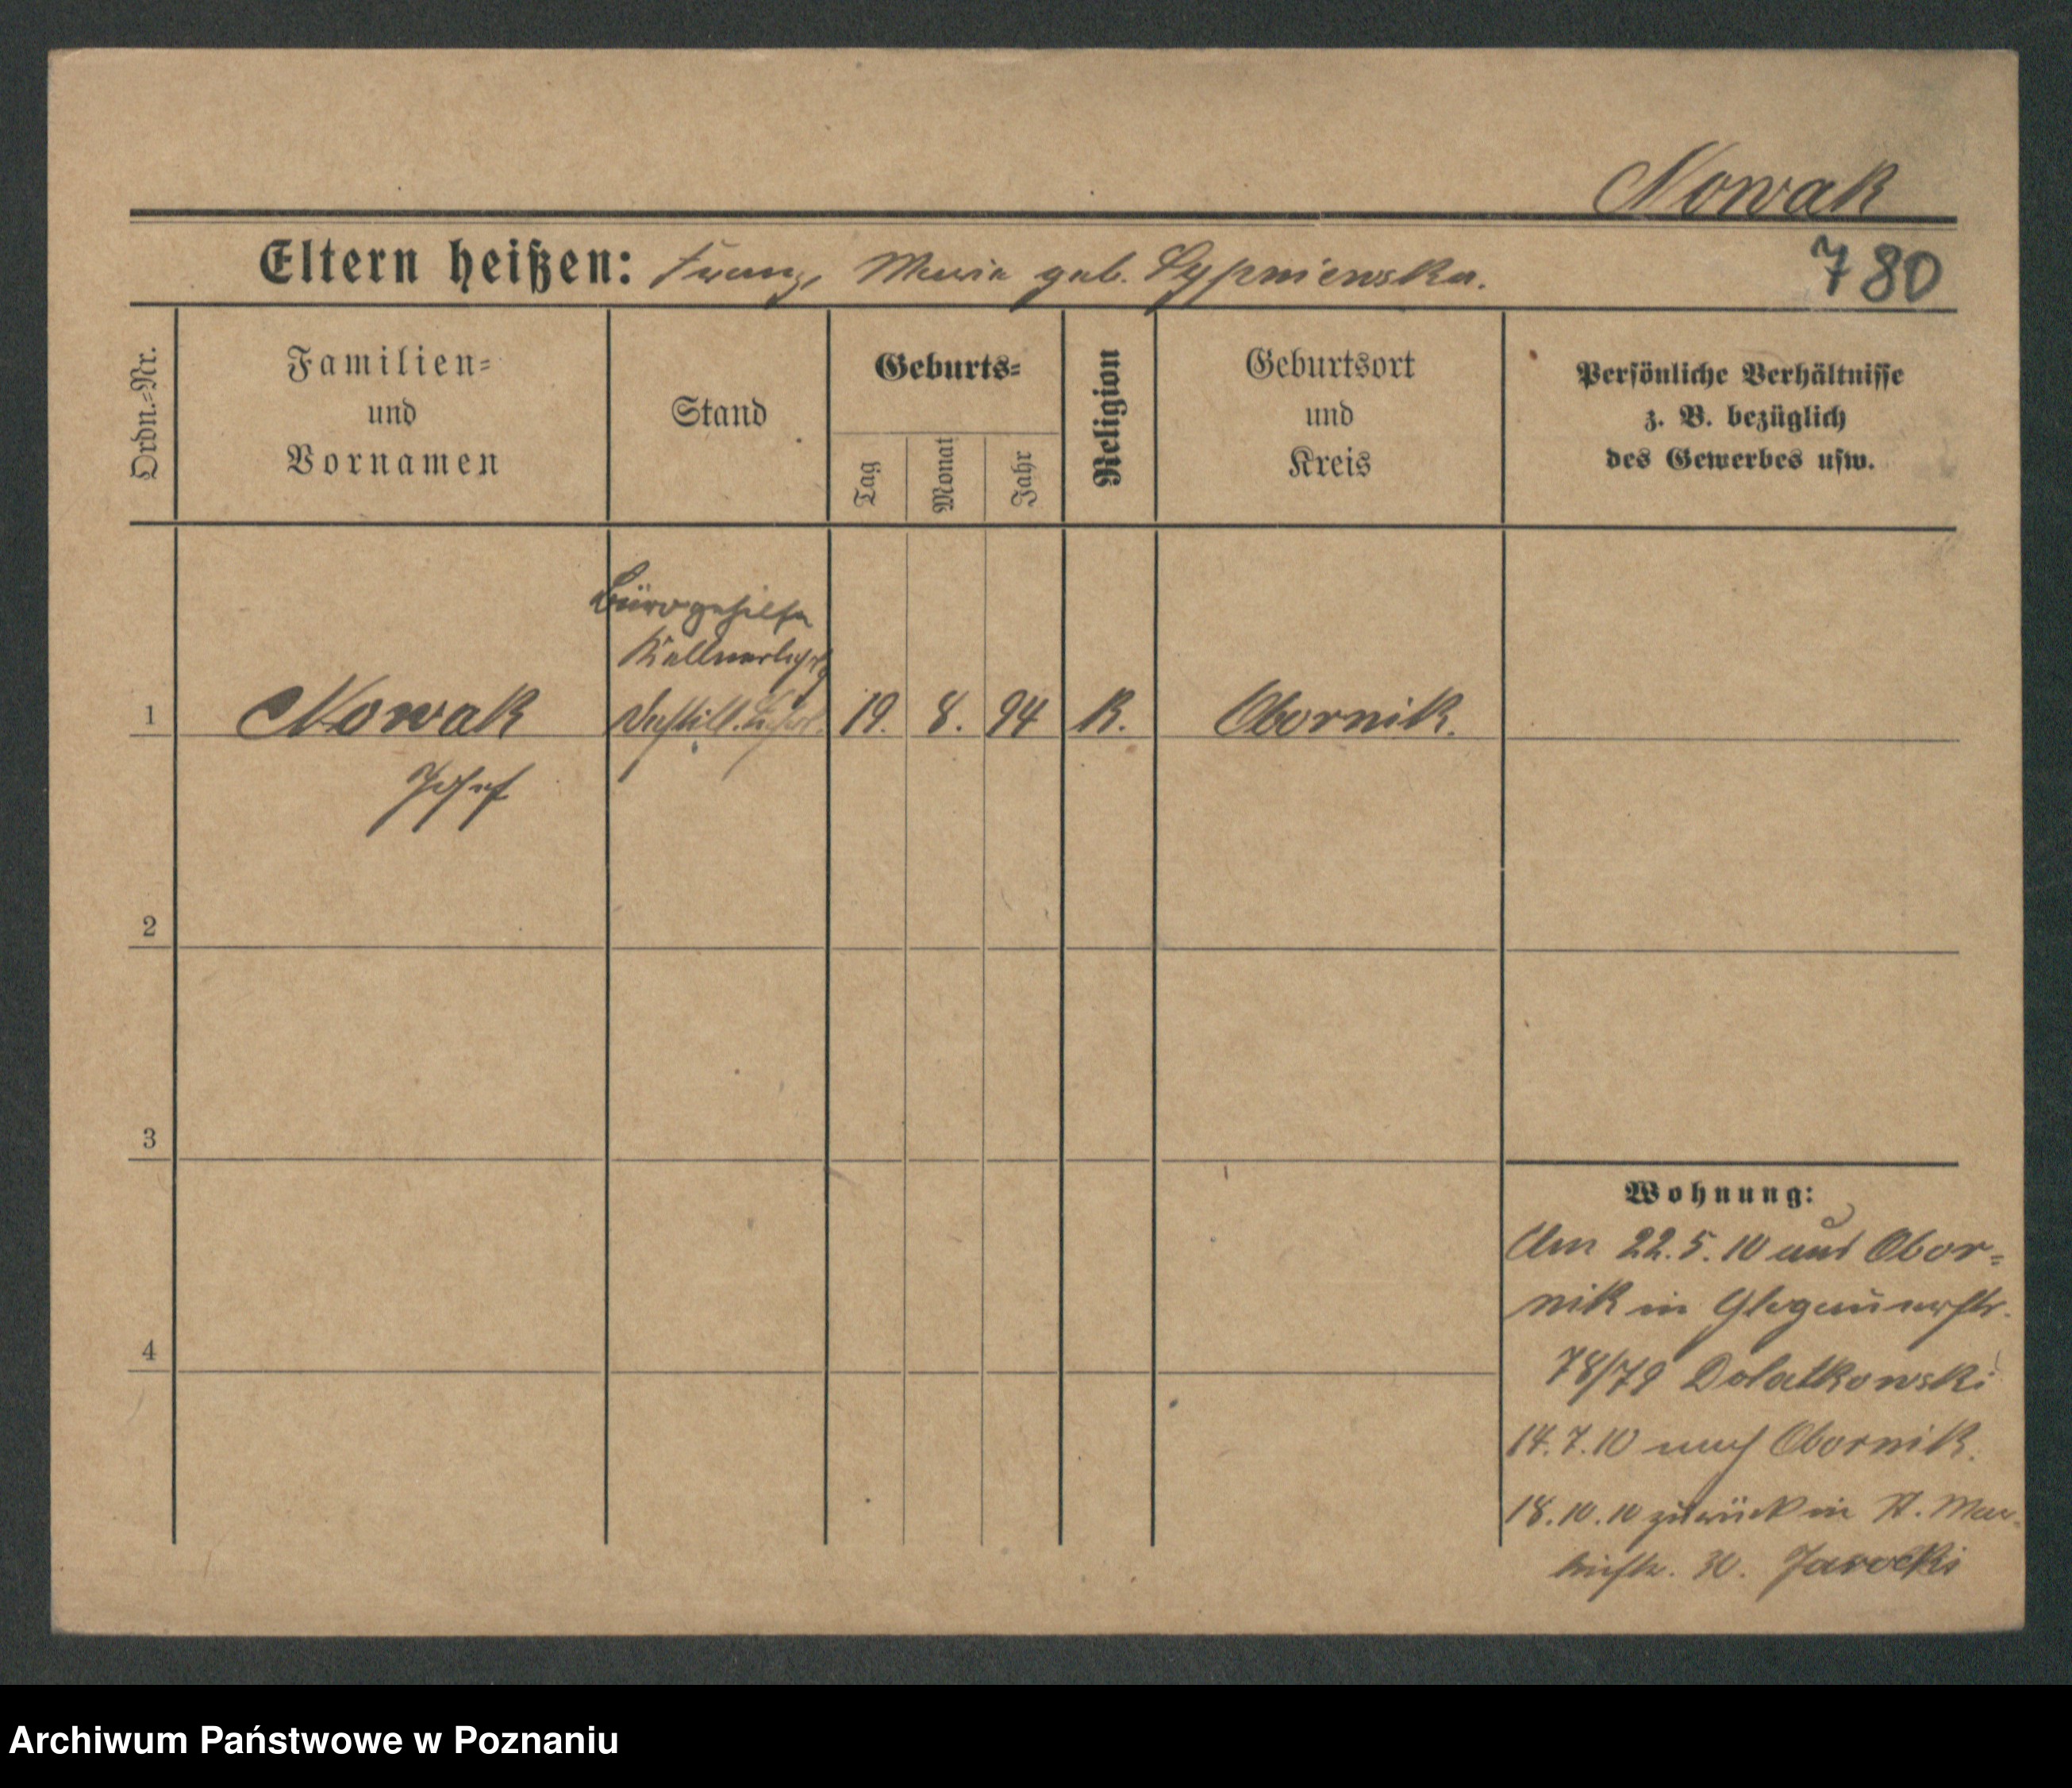 Nowak
Eltern heißen: Franz, Maria geb. Lypniewska.
780
Ordn.-Nr.
Familien-
und
Vornamen
Stand
Geburts-
Tag
Monat
Jahr
Religion
Geburtsort
und
Kreis
Persönliche Verhältnisse
z. B. bezüglich
des Gewerbes usw.
Bürogehilfe
Kellnerlehrlg
1 Nowak Destill. 19. 8. 94 K. Obornik.
Josef
2
3
4
Wohnung:
Am 22.5.10 aus Obor-
nik in Glogauerstr.
78/79 Dolatkowski
14.7.10 nach Obornik.
18.10.10 zurück in St. Mar-
tinstr. 30. Jarocki
Archiwum Państwowe w Poznaniu